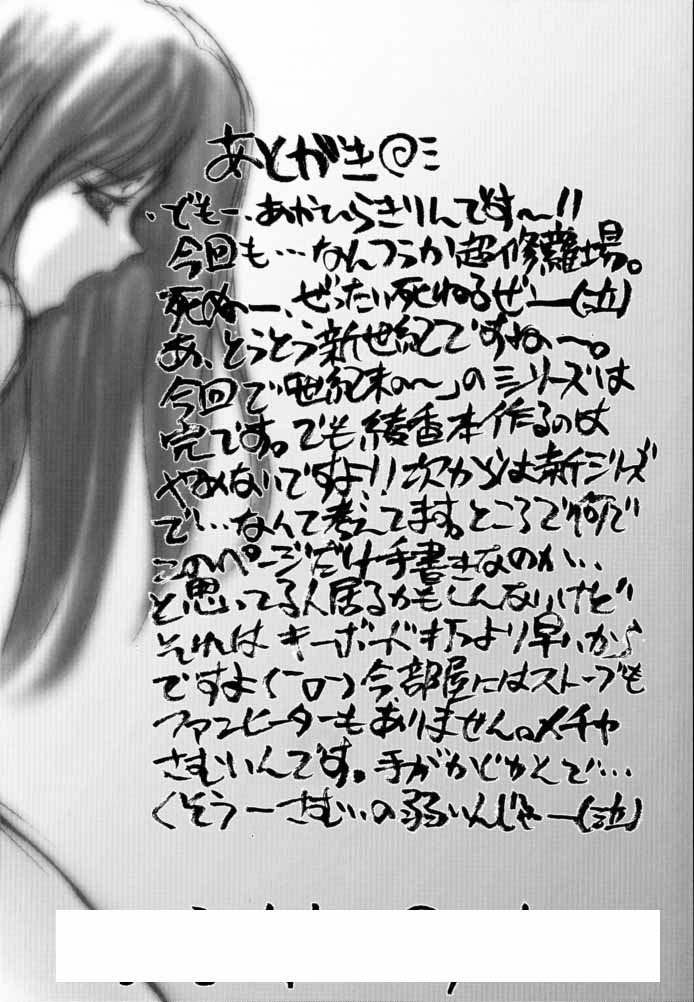 あとがき
でもー、あかひらきりんです〜!!
今回も…なんつうか超修羅場。
死ぬー、ぜったい死ねるぜー(泣)
あ、とうとう新世紀ですねー。
今回で「世紀末の〜」のシリーズは
完です。でも綾香本作るのは
やめないですよ!!次からは新シリーズ
で…なんて考えてます。ところで何で
このページだけ手書きなのか…
と思いてる人居るかもしんないけど
それはキーボード打つより早いから
ですよ(ーロー)今部屋にはストーブも
ファンヒーターもありません。メチャ
さむいんです。手がかじかんで…
くそうーさむいの弱いんじゃー(泣)